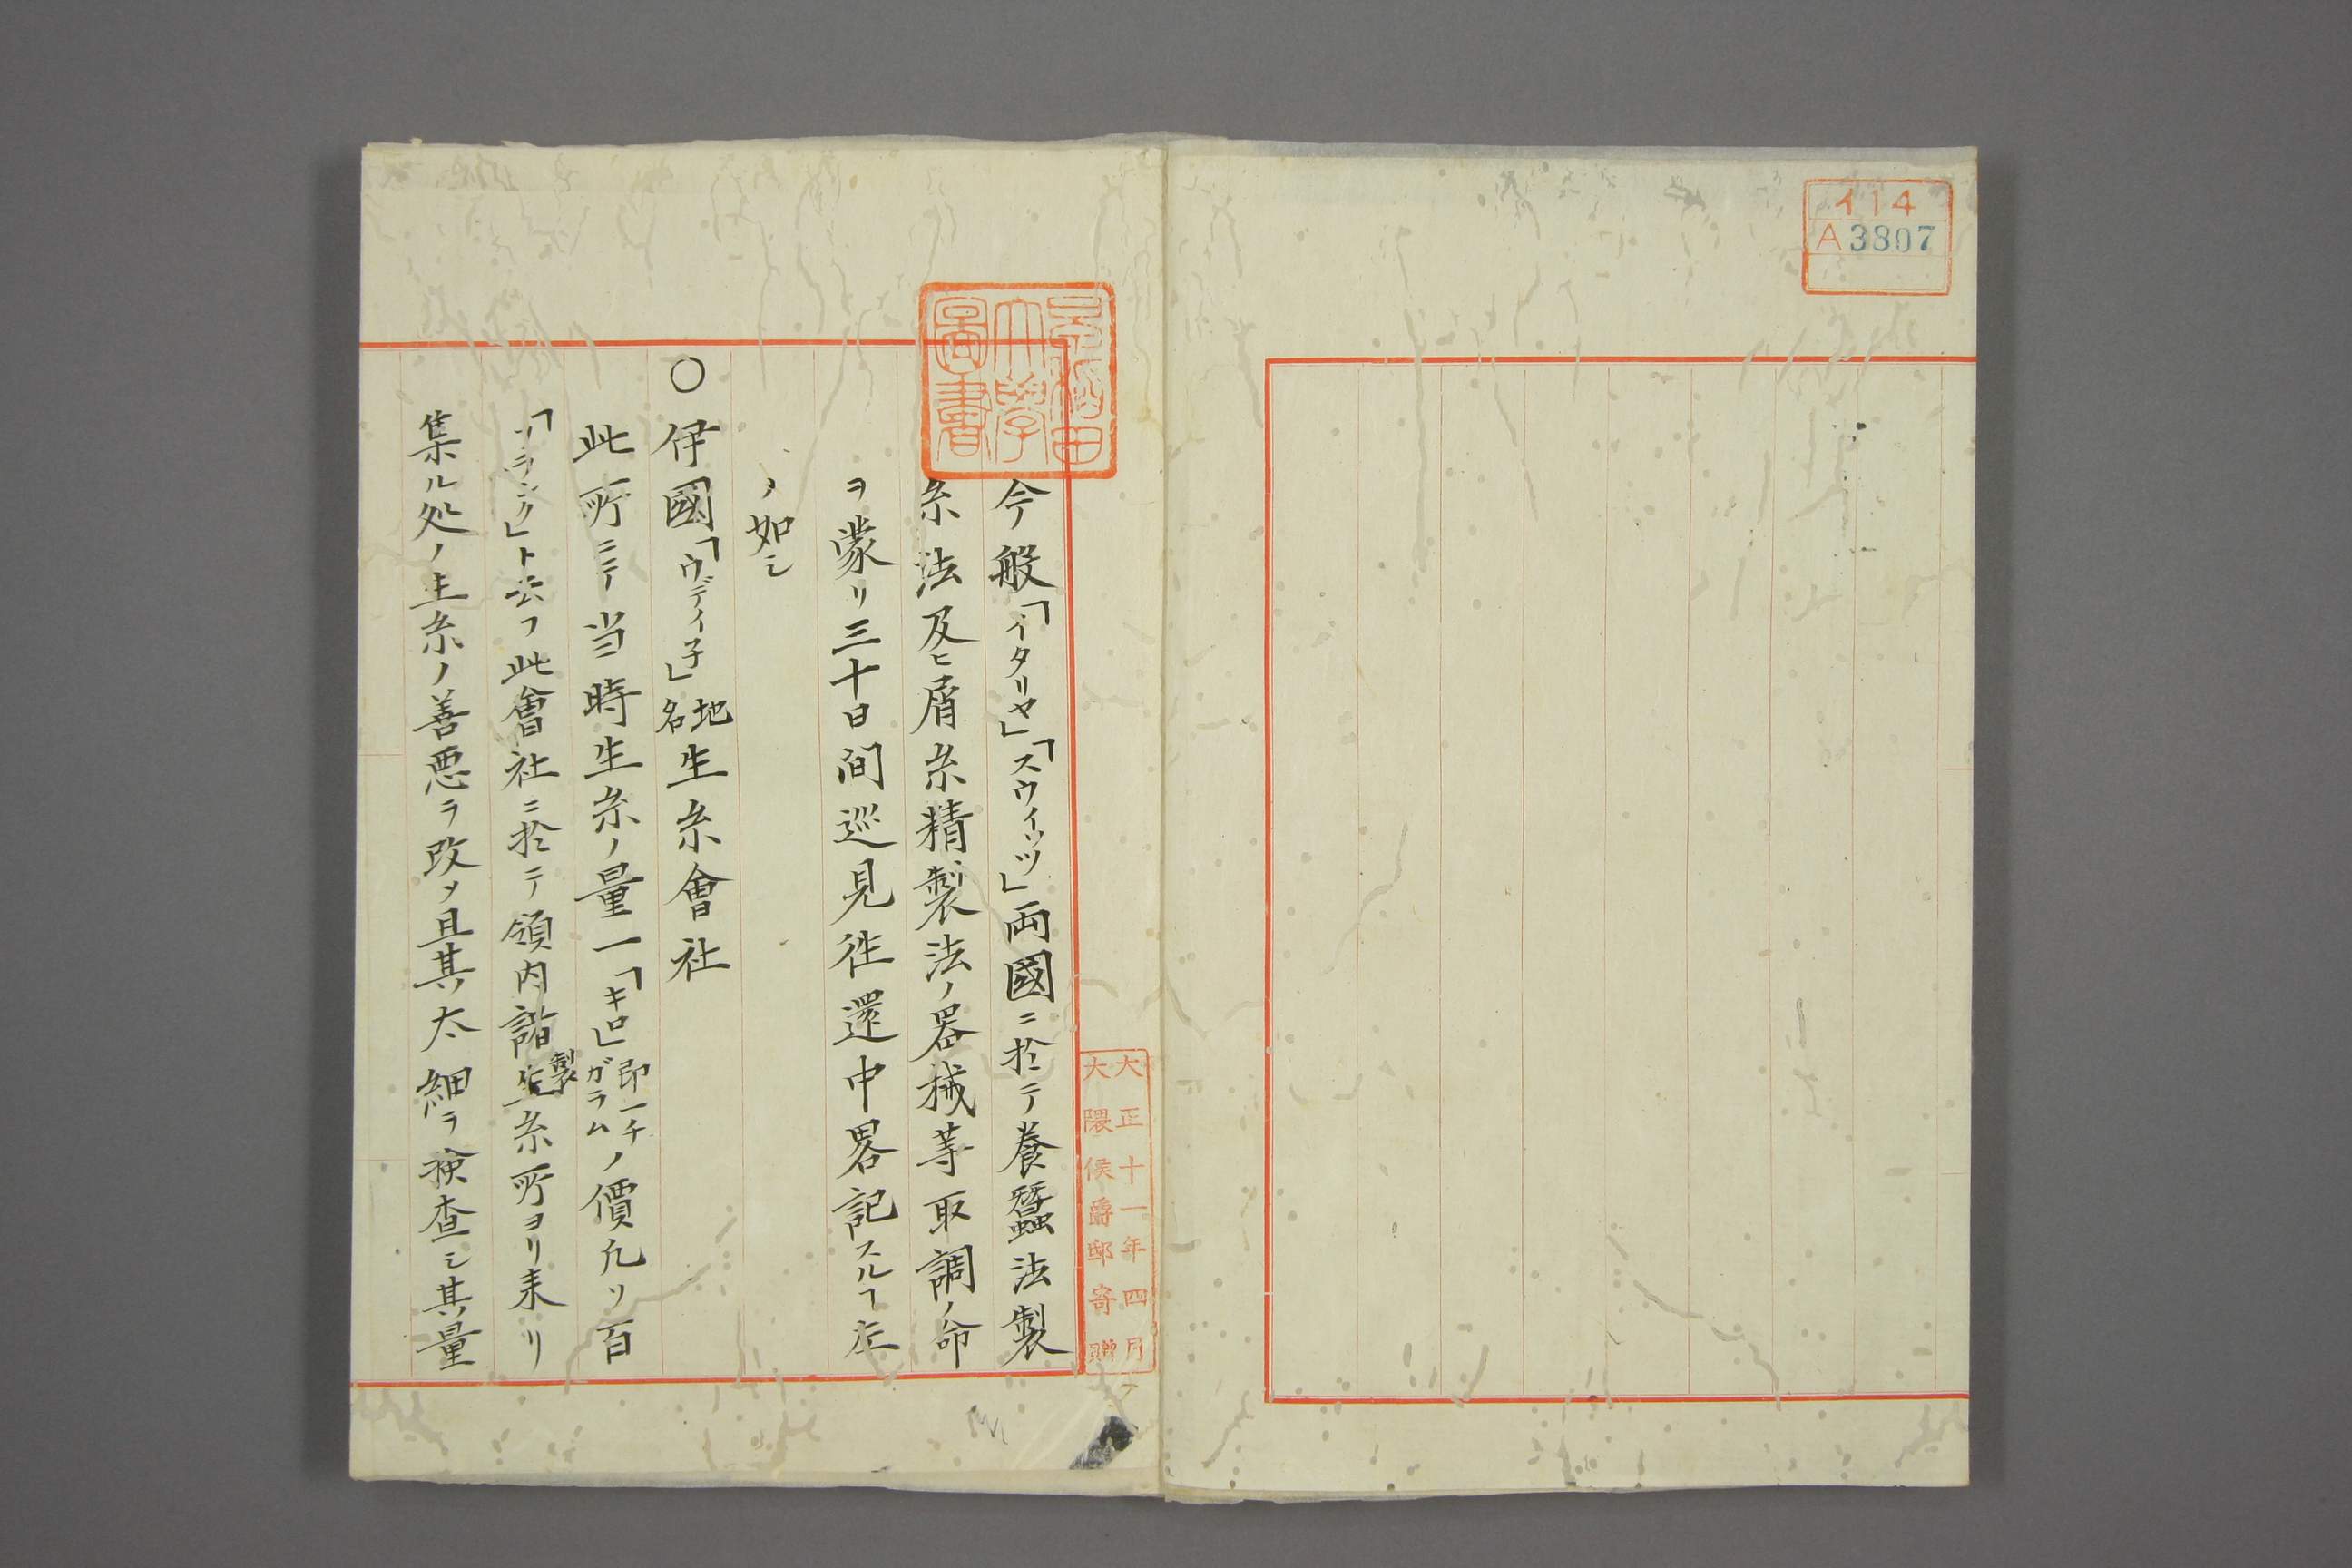 イ14
A3807
早稲田
大學
圖書
大正十一年四月
大隈侯爵邸寄贈
今般「イタリヤ」「スウイッツ」両國ニ於テ養蠶法製
糸法及ヒ屑糸精製法ノ器械等取調ノ命
ヲ蒙リ三十日間巡見徃還中畧記スルヿ左
ノ如シ
〇伊國「ウデイ子」地名生糸會社
此所ニテ当時生糸ノ量一「キロ」即一チガラムノ價凡ソ百
「フランク」ト云フ此會社ニ於テ領内諸製糸所ヨリ来リ
集ル処ノ生糸ノ善悪ヲ改メ且其ノ太細ヲ検査シ其量